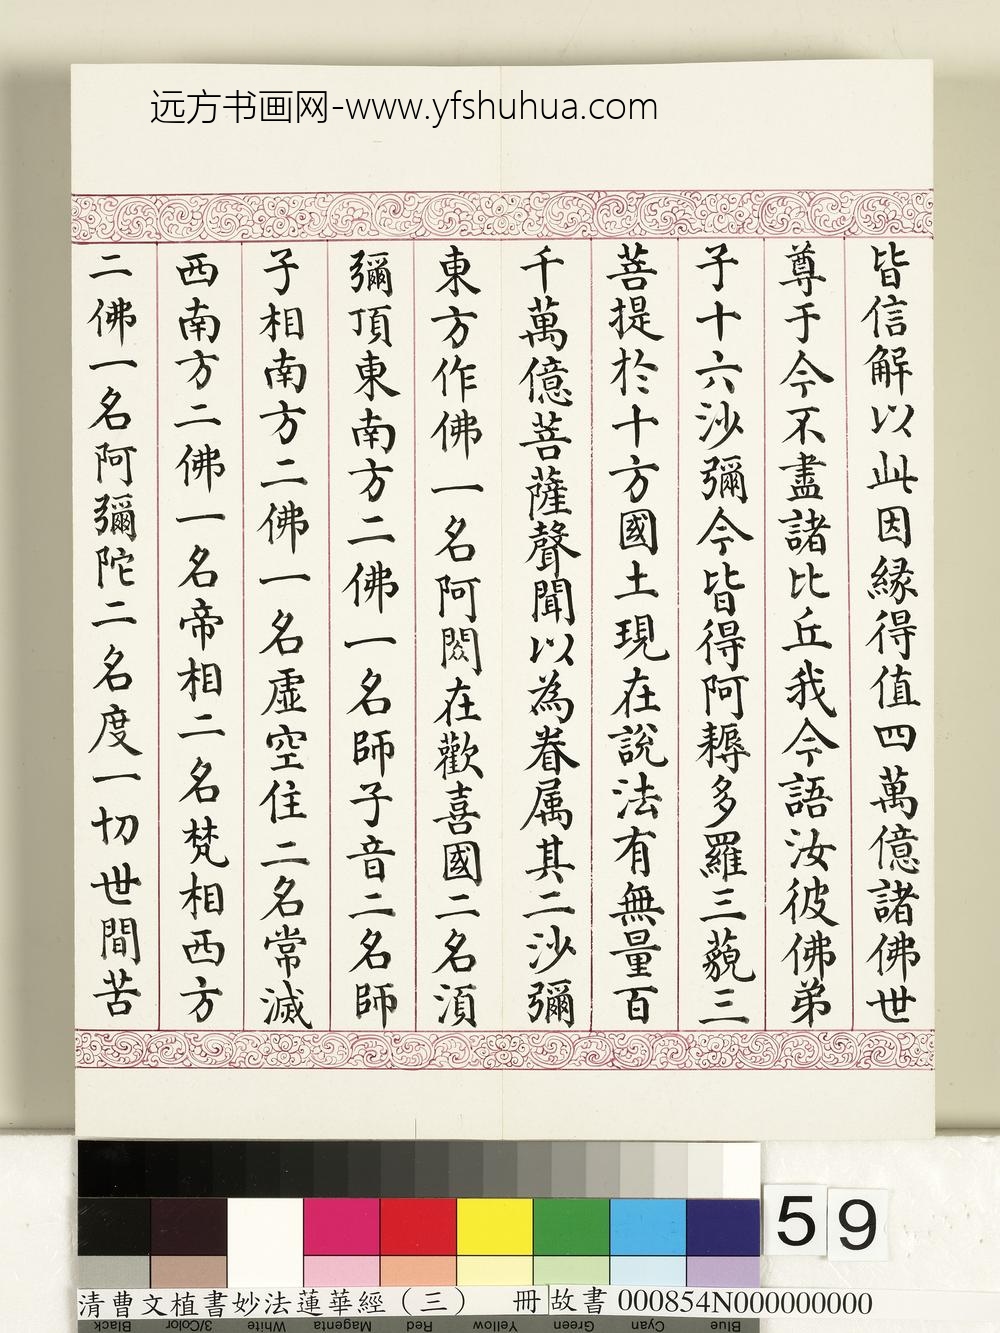 远方书画网-www.yfshuhua.com
皆信解以此因緣得值四萬億諸佛世
尊于今不盡諸比丘我今語汝彼佛弟
子十六沙彌今皆得阿耨多羅三藐三
菩提於十方國土現在說法有無量百
千萬億菩薩聲聞以為眷属其二沙彌
東方作佛一名阿閦在歡喜國二名湏
彌頂東南方二佛一名師子音二名師
子相南方二佛一名虛空住二名常滅
西南方二佛一名帝相二名梵相西方
二佛一名阿彌陀二名度一切世間苦
59
清曹文植書妙法蓮華經（三） 冊 故書 000854N000000000
Black 3/Color White Magenta Red Yellow Green Cyan Blue